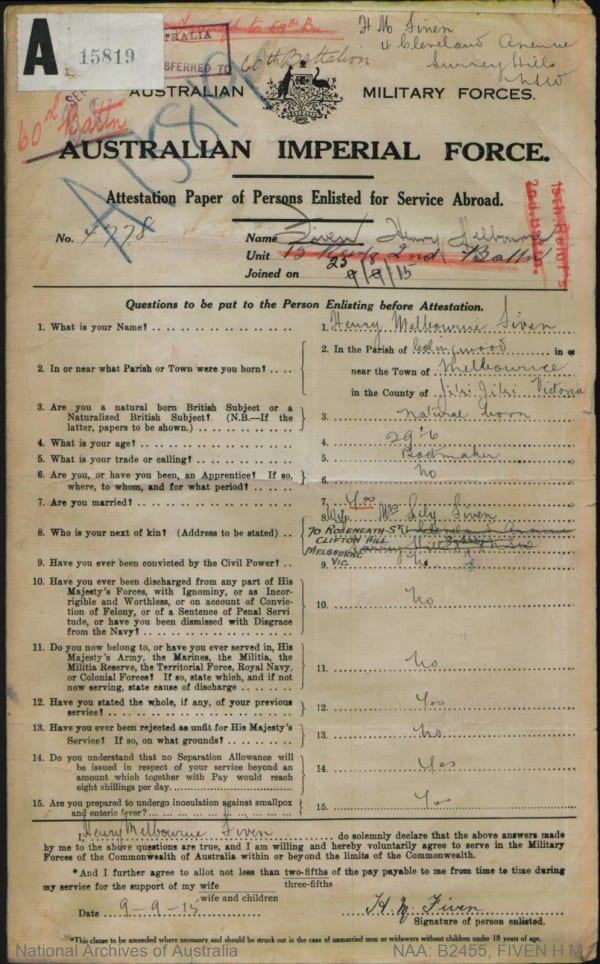 A 15819
H M Fiven
Cleveland Avenue
Surrey Hills
NSW
60th Battalion
60th Battn
AUSTRALIAN MILITARY FORCES.
AUSTRALIAN IMPERIAL FORCE.
Attestation Paper of Persons Enlisted for Service Abroad.
No. 4778
Name Fiven Henry Melbourne
Unit 15 Reinfs 2nd Battn
Joined on 9/9/15
15th Reinf's
2nd Battn.
Questions to be put to the Person Enlisting before Attestation.
1. What is your Name? 1. Henry Melbourne Fiven
2. In or near what Parish or Town were you born? 2. In the Parish of Colingwood in
near the Town of Melbourne
in the County of Jika Jika Victoria
3. Are you a natural born British Subject or a
Naturalized British Subject? (N.B.—If the
latter, papers to be shown.) 3. natural born
4. What is your age? 4. 29 6/12
5. What is your trade or calling? 5. Bootmaker
6. Are you, or have you been, an Apprentice? If so,
where, to whom, and for what period? 6. No
7. Are you married? 7. Yes
8. Who is your next of kin? (Address to be stated) 8. Wife Mrs Lily Fiven
70 ROSENEATH-ST
CLIFTON HILL
MELBOURNE
VIC.
9. Have you ever been convicted by the Civil Power? 9. No
10. Have you ever been discharged from any part of His
Majesty's Forces, with Ignominy, or as Incor-
rigible and Worthless, or on account of Convic-
tion of Felony, or of a Sentence of Penal Servi
tude, or have you been Dismissed with Disgrace
from the Navy? 10. No
11. Do you now belong to, or have you ever served in, His
Majesty's Army, the Marines, the Militia, the
Militia Reserve, the Territorial Force, Royal Navy,
or Colonial Forces? If so, state which, and if not
now serving, state cause of discharge 11. No
12. Have you stated the whole, if any, of your previous
service? 12. Yes
13. Have you ever been rejected as unfit for His Majesty's
Service? If so, on what grounds? 13. No
14. Do you understand that no Separation Allowance will
be issued in respect of your service beyond an
amount which together with Pay would reach
eight shillings per day. 14. Yes
15. Are you prepared to undergo inoculation against smallpox
and enteric fever? 15. Yes
I, Henry Melbourne Fiven do solemnly declare that the above answers made
by me to the above questions are true, and I am willing and hereby voluntarily agree to serve in the Military
Forces of the Commonwealth of Australia within or beyond the limits of the Commonwealth.
*And I further agree to allot not less than two-fifths of the pay payable to me from time to time during
three-fifths
my service for the support of my wife
wife and children
Date 9-9-15 H. M. Fiven
Signature of person enlisted.
*This clause to be amended where necessary and should be struck out in the case of unmarried men or widowers without children under 18 years of age.
National Archives of Australia NAA: B2455, FIVEN H M